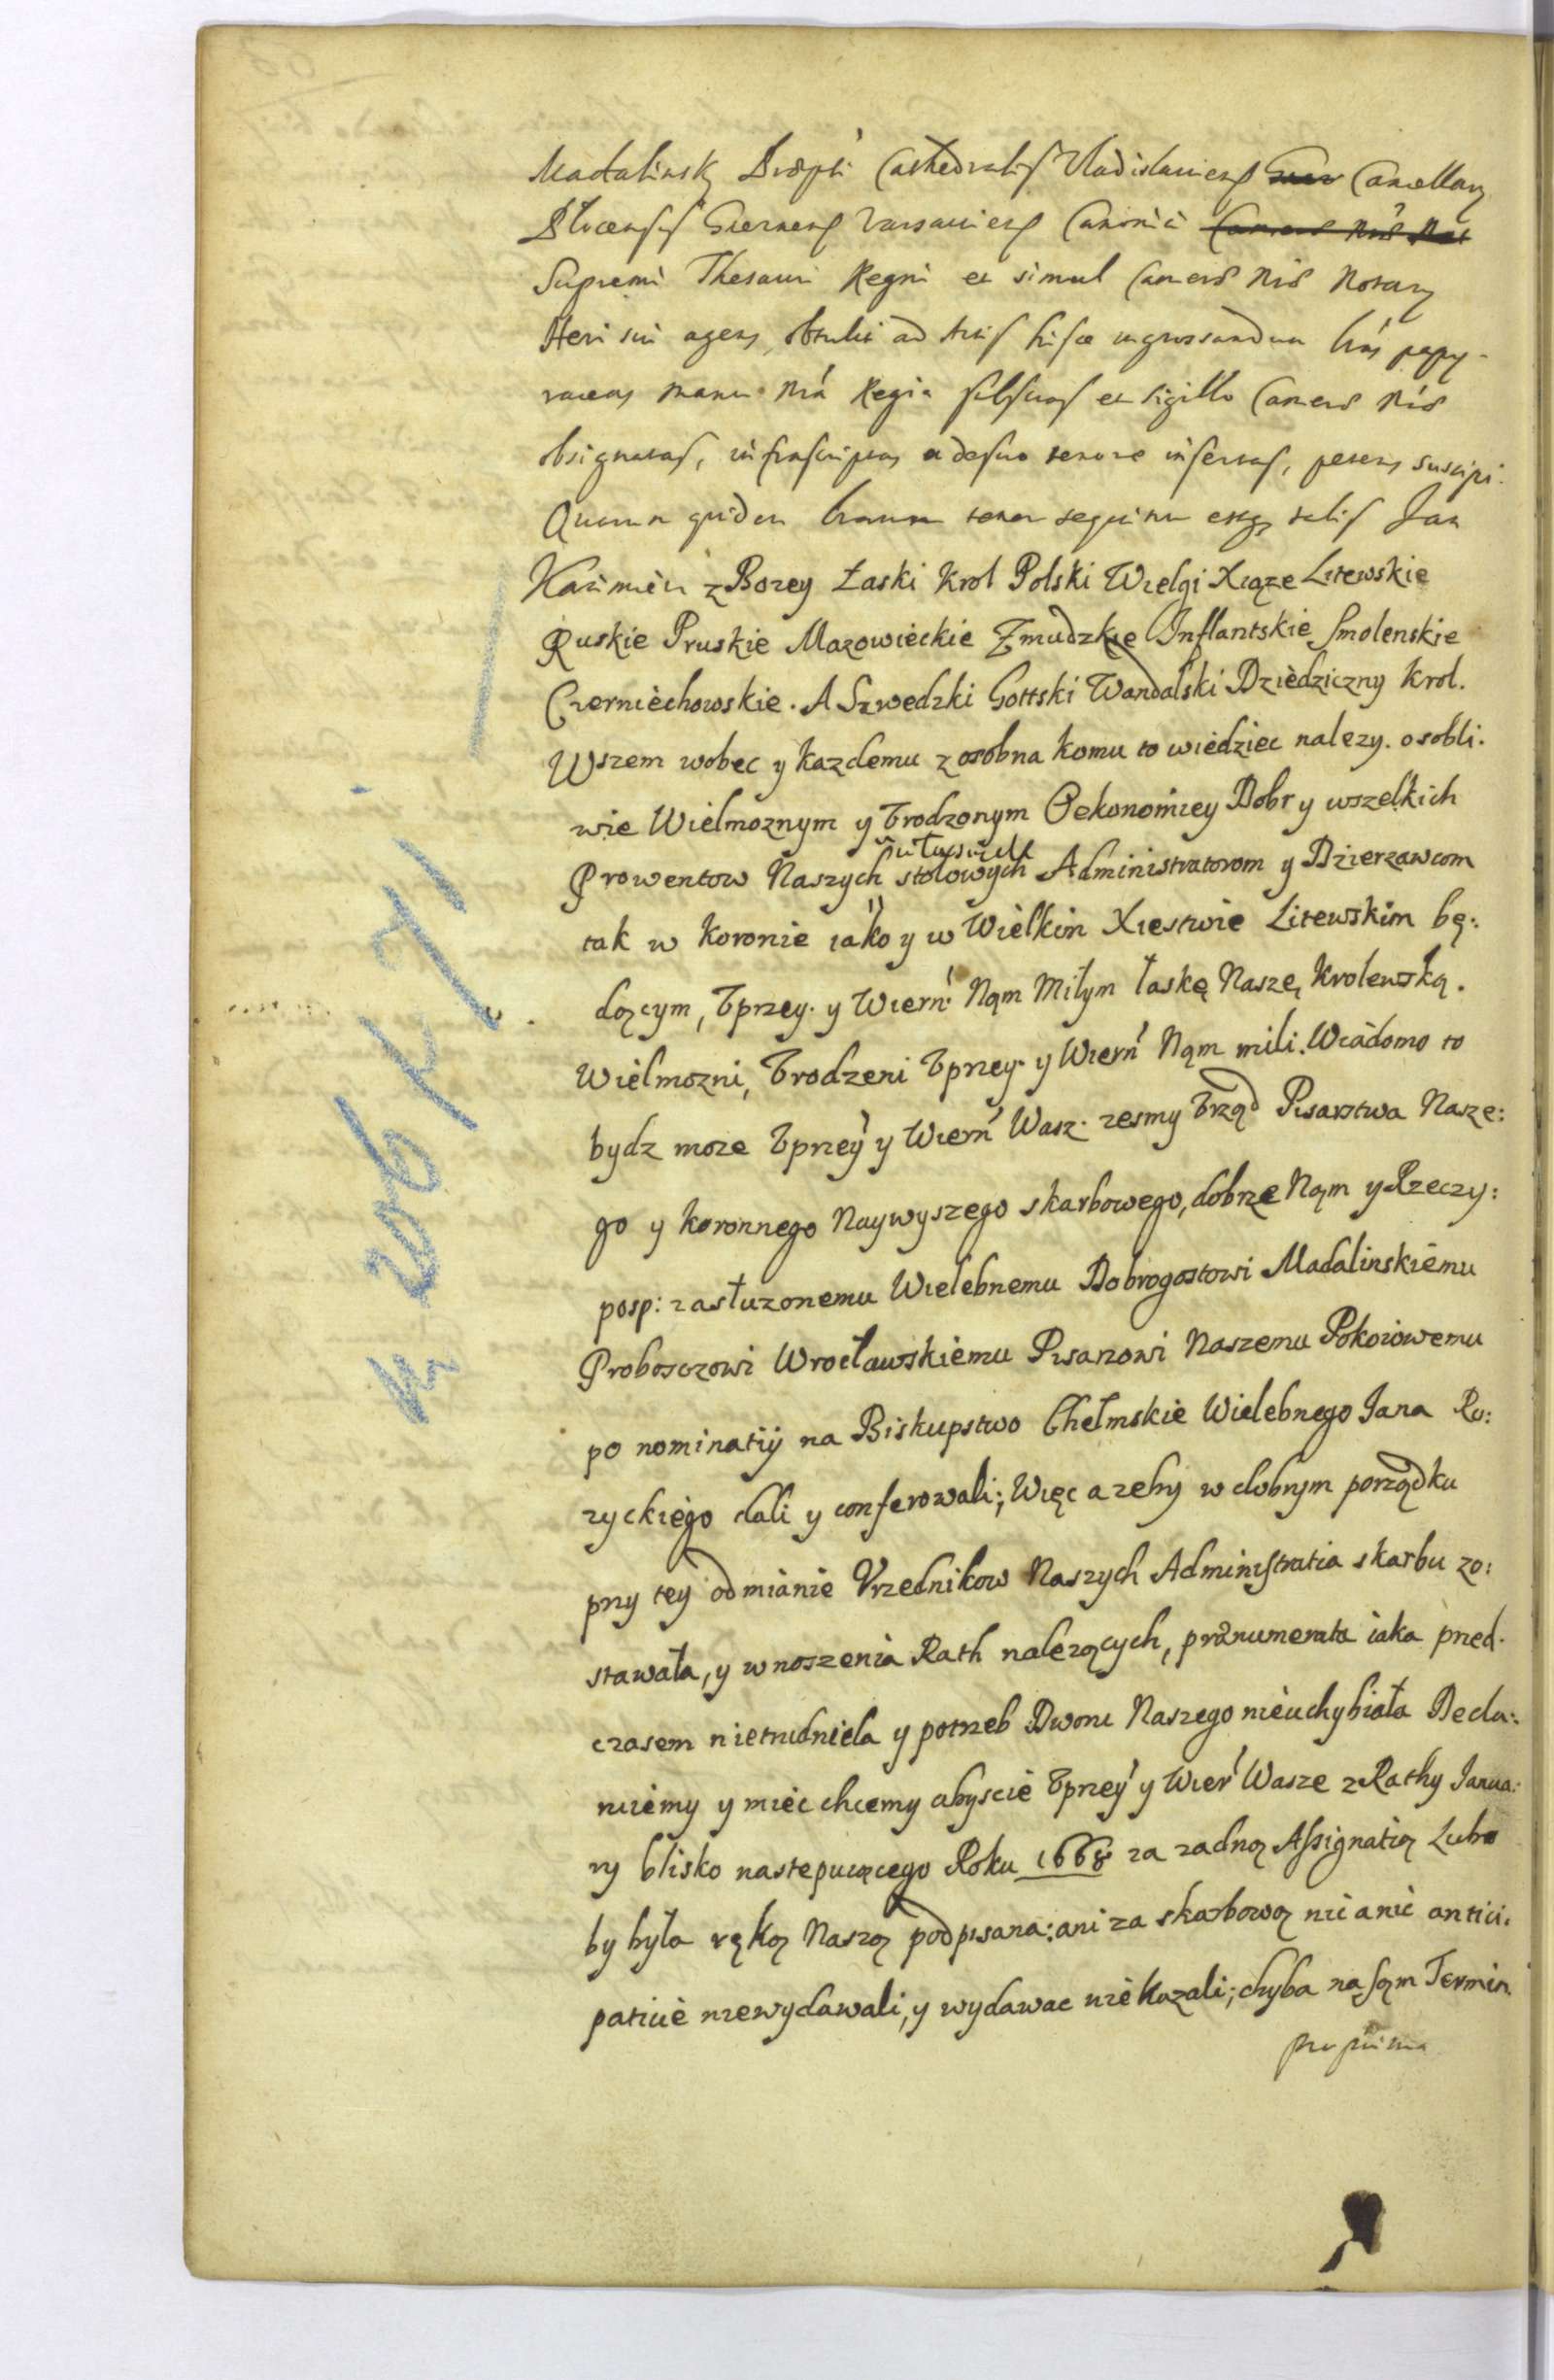 Madalinsky Praepti Cathedralis Vladislaviens Cancellary
Plocensis Gneznens Varsaviens Canonici
Supremi Thesauri Regni et simul Camerae Nrae Notary
Heri sui agens, obtulit ad Acta hisce ingrossandum lras papy-
raceas manu Nra Regia subscras et sigillo Camerae Nrae
obsignatas, infrascriptas adesuo tenore insertas, petens suscipi.
Quarum quidem lrarum tenor sequitur estq talis Jan
Kazimierz z Bozey Łaski Krol Polski Wielgi Xiąze Litewskie
Ruskie Pruskie Mazowieckie Zmudzkie Inflantskie Smolenskie
Czerniechowskie. A Szwedzki Gottski Wandalski Dziedziczny Krol.
Wszem wobec y kazdemu z osobna komu to wiedziec nalezy. osobli.
wie Wielmoznym y Vrodzonym Oekonomiey Dobr y wszelkich
Prowentow Naszych stolowych Administratorom y Dzierzawcom
tak w Koronie iako y w Wielkim Xiestwie Litewskim bę:
dącym, Vprzey. y Wiern: Nąm Miłym łaskę Naszę Krolewską.
Wielmozni, Vrodzeni Vprzey. y Wiern Nąm mili. Wiadomo to
bydz moze Vprzey y Wiern Wasz. zesmy Vrząd Pisarztwa Nasze:
go y Koronnego Naywyszego skarbowego, dobrze Nąm y Rzeczy:
posp: zasłuzonemu Wielebnemu Dobrogostowi Madalinskiemu
Proboszczowi Wrocławskiemu Pisarzowi Naszemu Pokoiowemu
po nominatiÿ na Biskupstwo Chełmskie Wielebnego Jana Ro:
zyckiego dali y conferowali; Więc azeby w dobrym porządku
przy tey odmianie Vrzednikow Naszych Administratia skarbu zo:
stawała, y wnoszenia Rath nalezących, praenumerata iaka przed.
czasem nietrudniela y potrzeb Dworu Naszego nieuchybiała Decla:
ruiemy y miec chcemy abyscie Vprzey y Wier Wasze z Rathy Janua:
ry blisko nastepuiącego Roku 1668 za zadną Assignatią Lubo
by była ręką Naszą podpisana: ani za skarbową nic a nic antici.
patiue niewydawali, y wydawac nie kazali; chyba na sąm Termin.